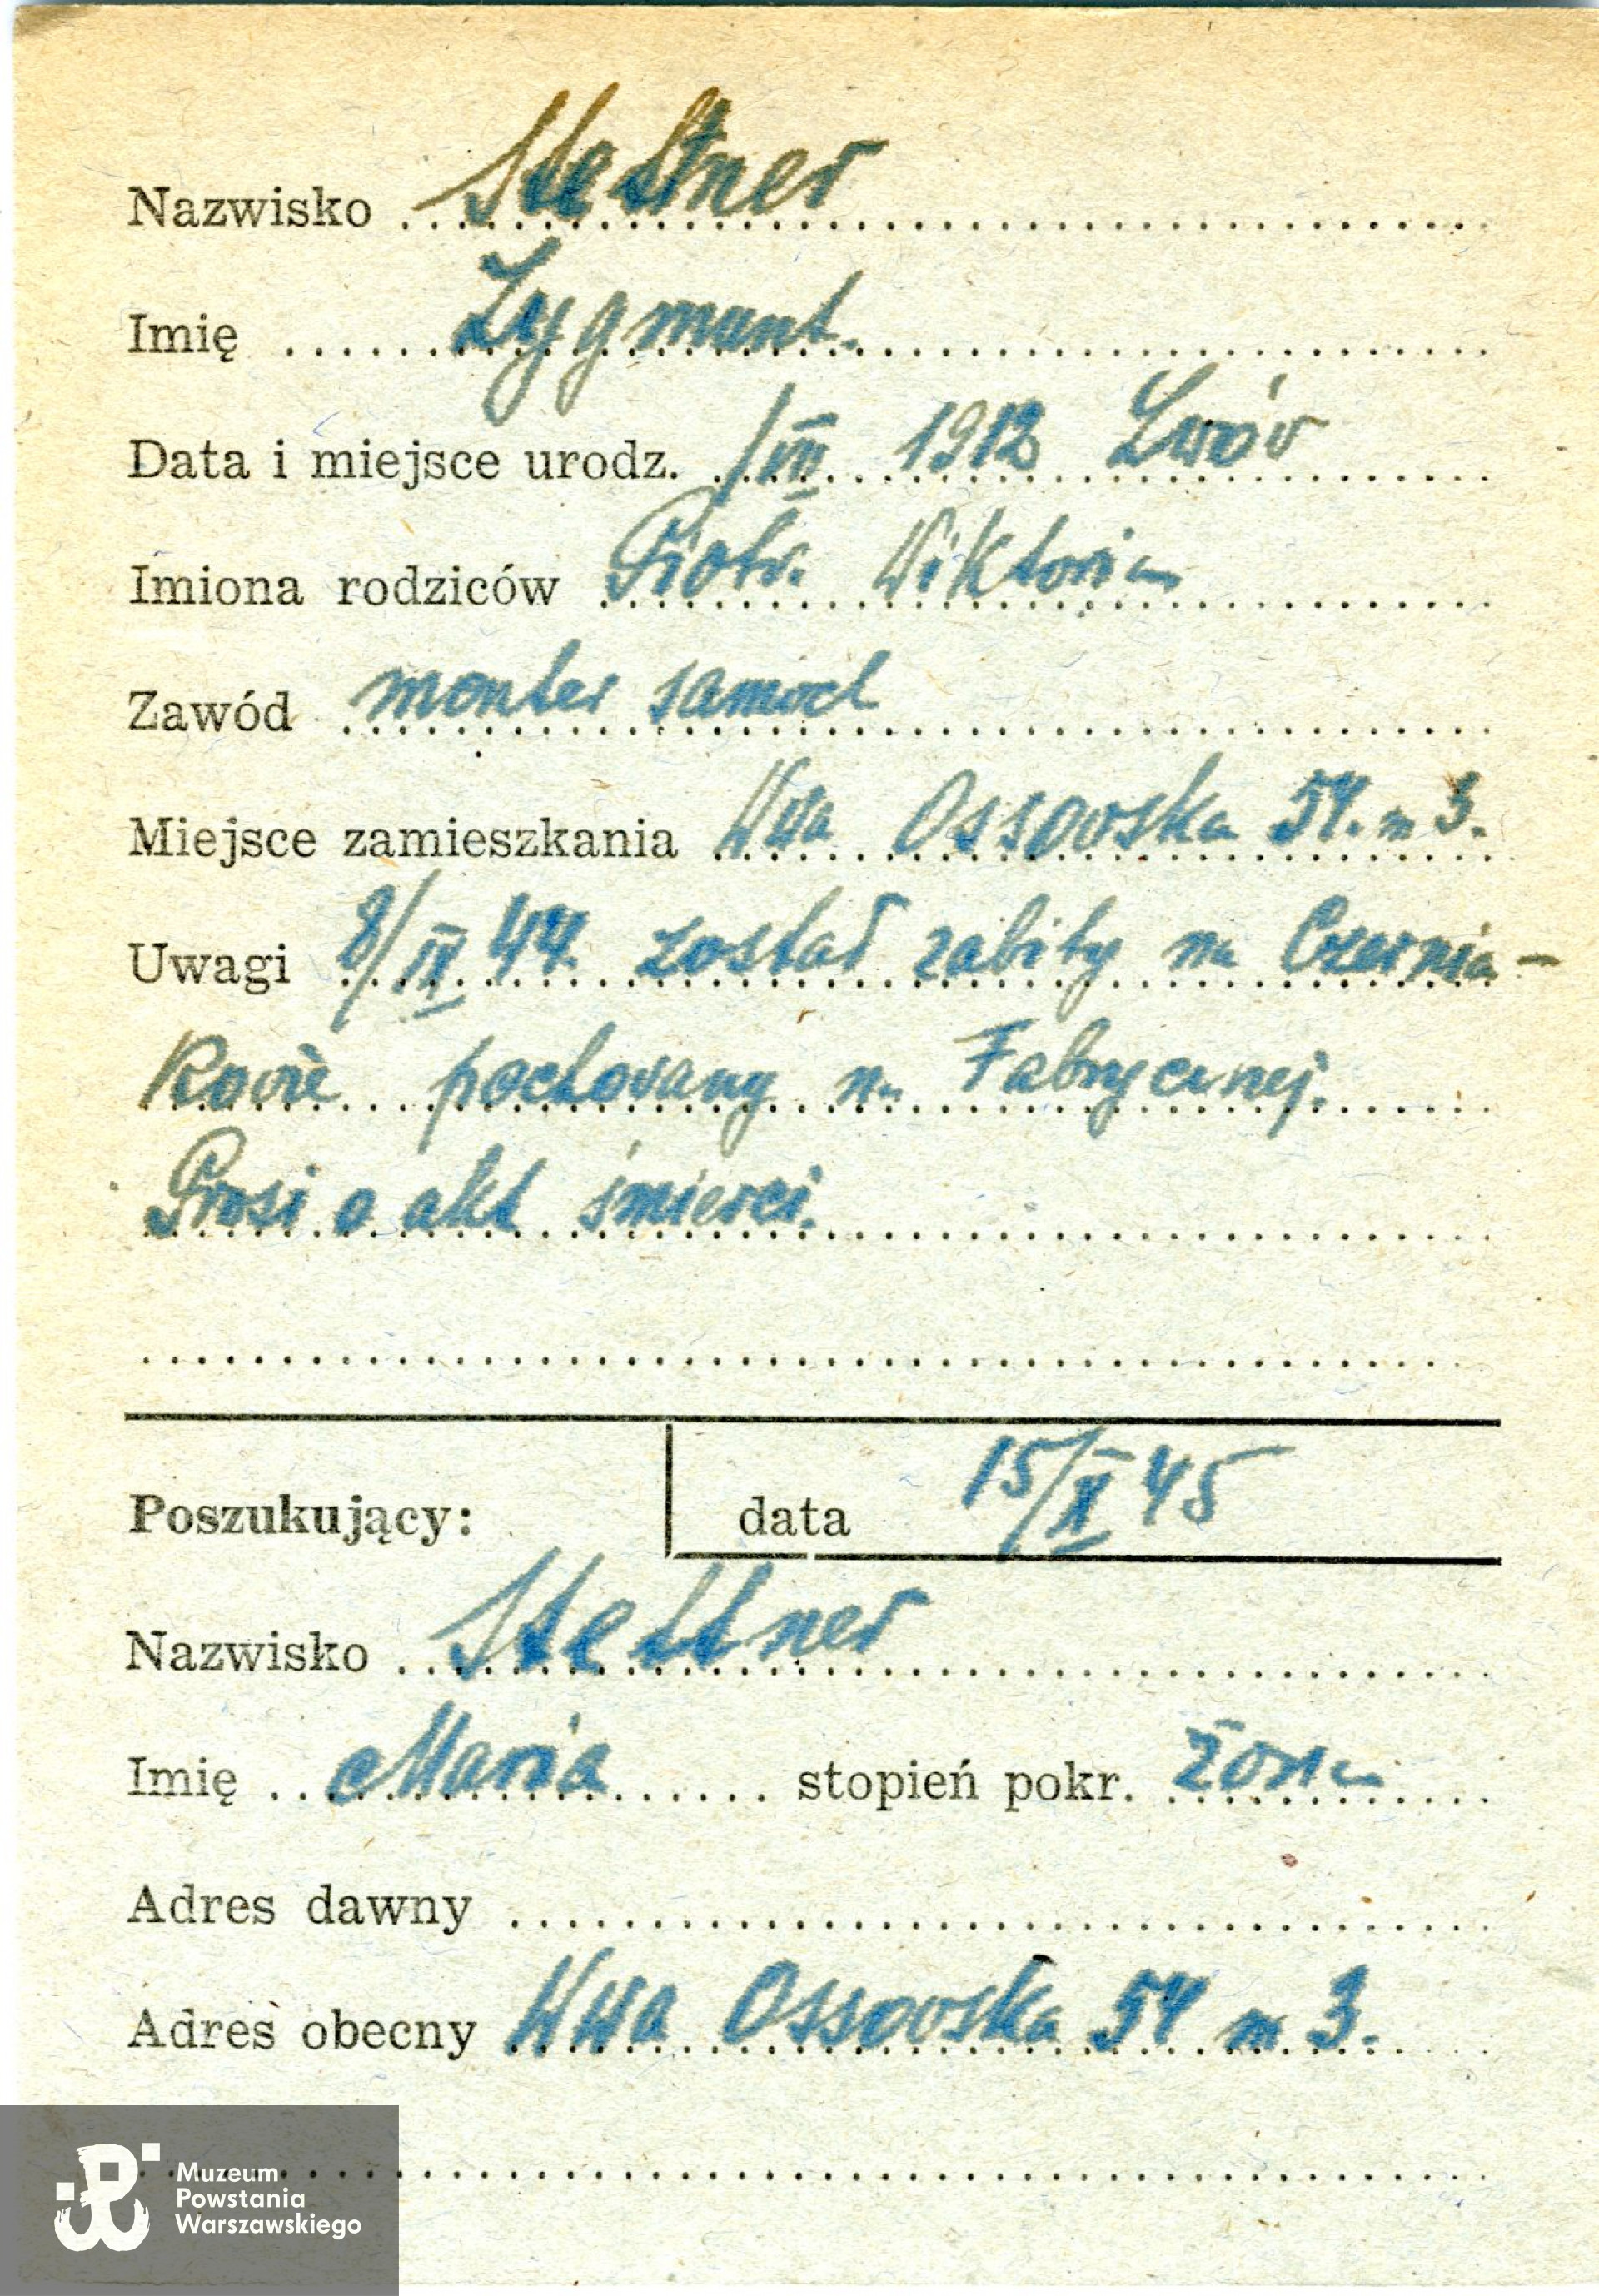 Nazwisko Stettner
Imię Zygmunt.
Data i miejsce urodz. 1/VII 1912 Lwów
Imiona rodziców Piotr. Wiktoria
Zawód monter samoch
Miejsce zamieszkania Wwa Ossowska 54. m 3.
Uwagi 8/IX 44. został zabity na Czernia-
kowie pochowany na Fabrycznej.
Prosi o akt śmierci.
Poszukujący: data 15/X 45
Nazwisko Stettner
Imię Maria stopień pokr. żona
Adres dawny
Adres obecny Wwa Ossowska 54 m 3.
Muzeum
Powstania
Warszawskiego